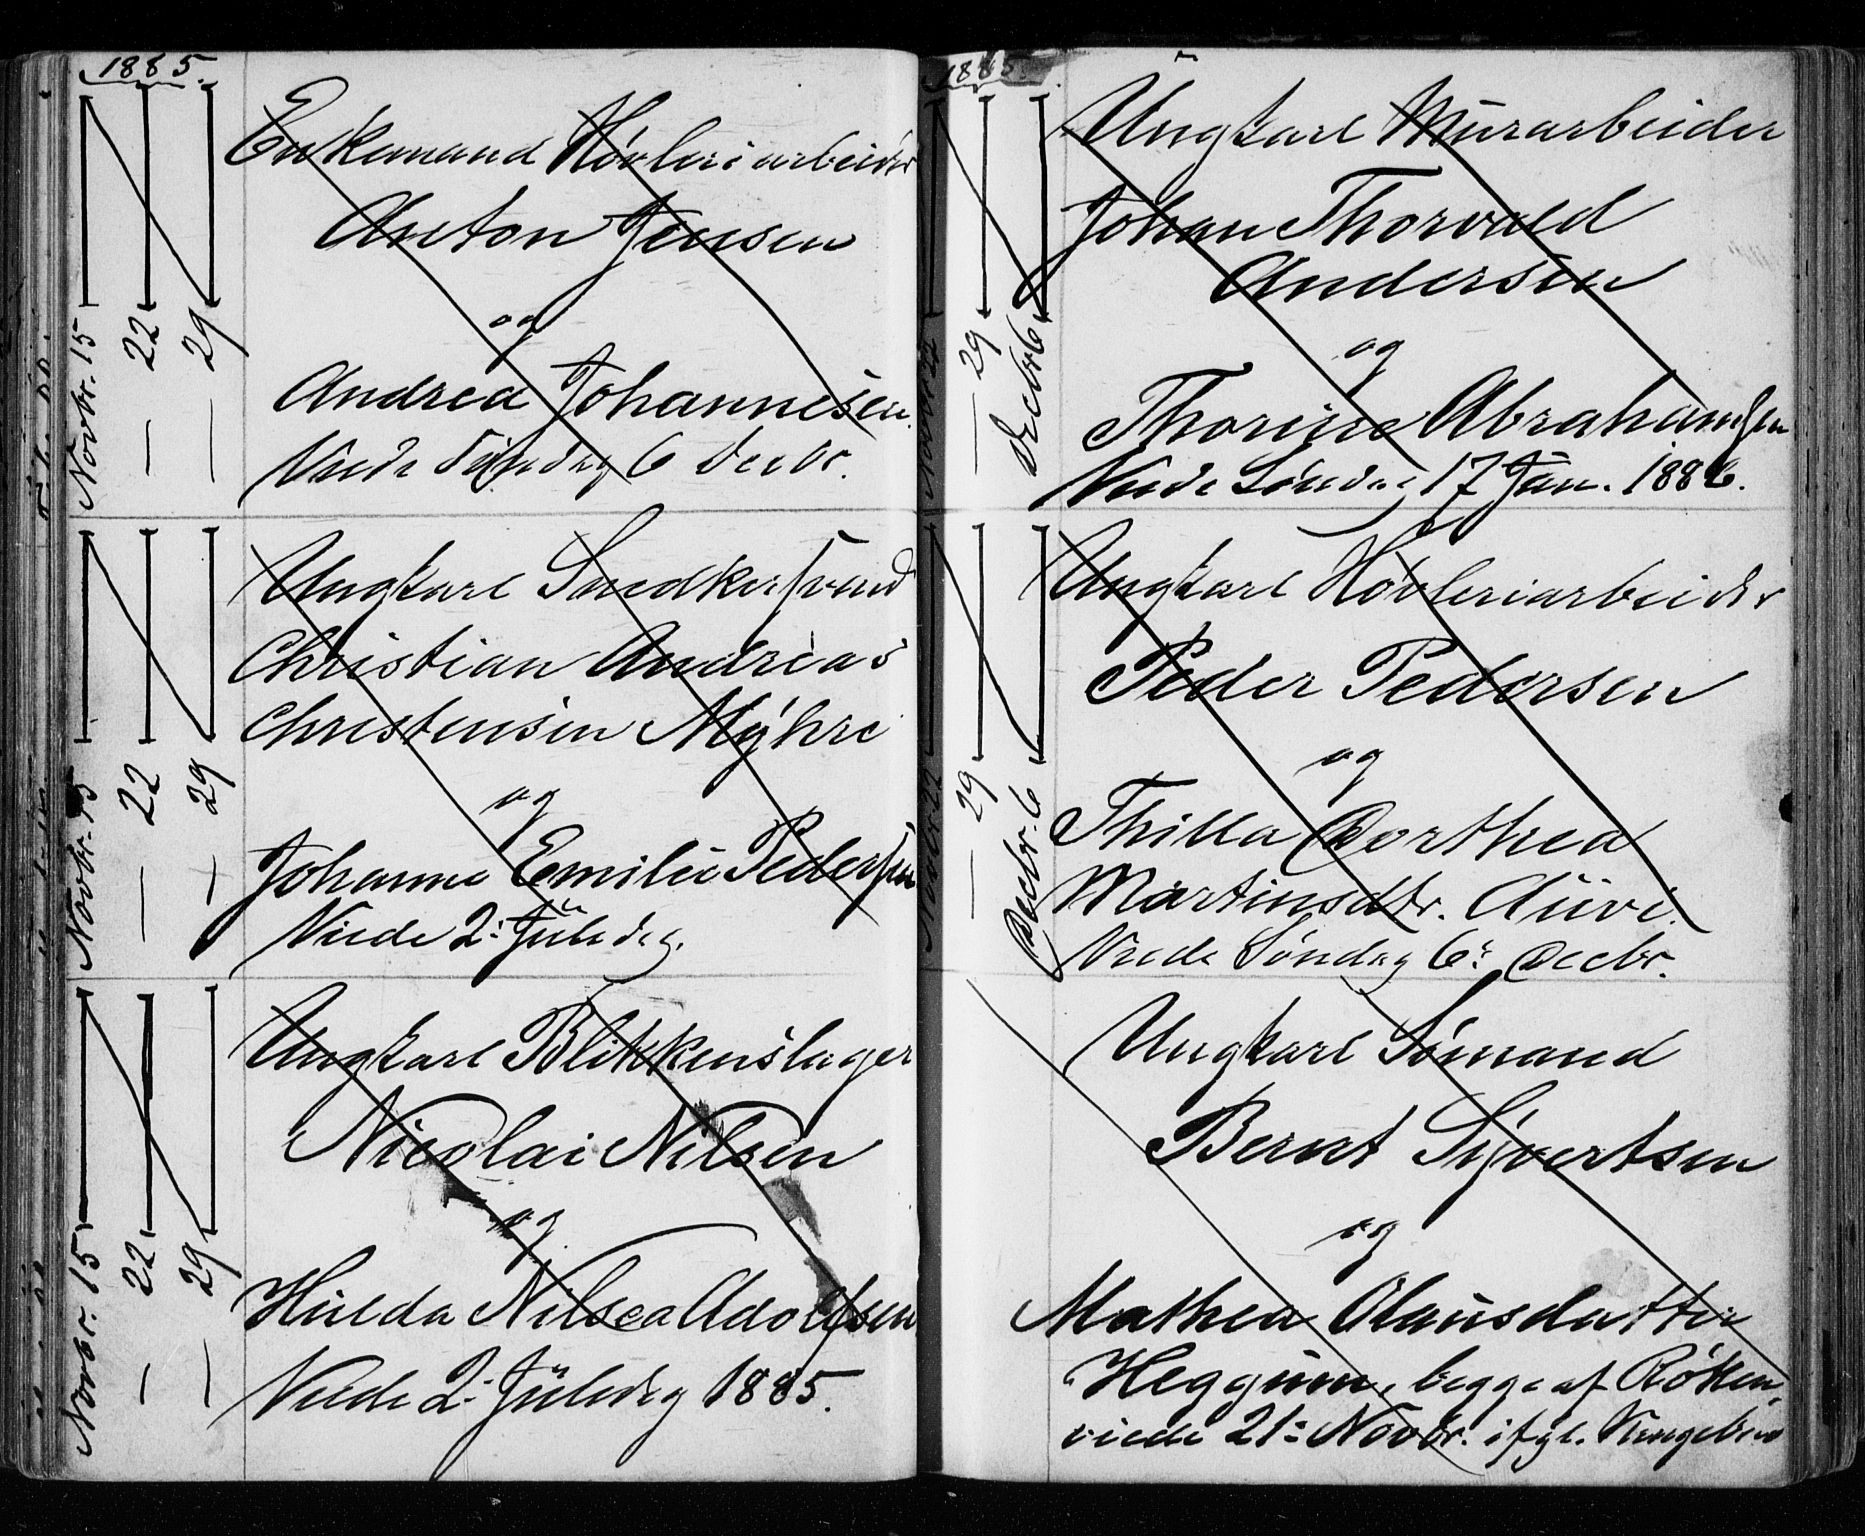 1885.
Novbr. 15
— 22
— 29
Enkemand Høvleriarbeider
Anton Jensen
og
Andrea Johannesen.
Viede Søndag 6 Decbr.
Novbr. 15
— 22
— 29
Ungkarl Snedkersvend
Christian Andreas
Christensen Myhre
og
Johanne Emilie Pedersen
Viede 2: Juledag.
Novbr. 15
— 22
— 29
Ungkarl Blikkenslager
Nicolai Nilsen
og
Hulda Nilsea Adolfsen
Viede 2: Juledag 1885.
1885.
Novbr 22
— 29
Decbr 6
Ungkarl Murarbeider
Johan Thorvald
Andersen
og
Thorine Abrahamsen
Viede Søndag 17 Jan. 1886.
Novbr. 22
— 29
Decbr. 6
Ungkarl Høvleriarbeider
Peder Pedersen
og
Thilla Dorthea
Martinsdtr. Auvi.
Viede Søndag 6: Decbr.
Ungkarl Sømand
Bernt Sijvertsen
og
Mathea Olausdatter
Heggum, begge af Røken,
viede 21: Novbr. ifgl. Kongebrev